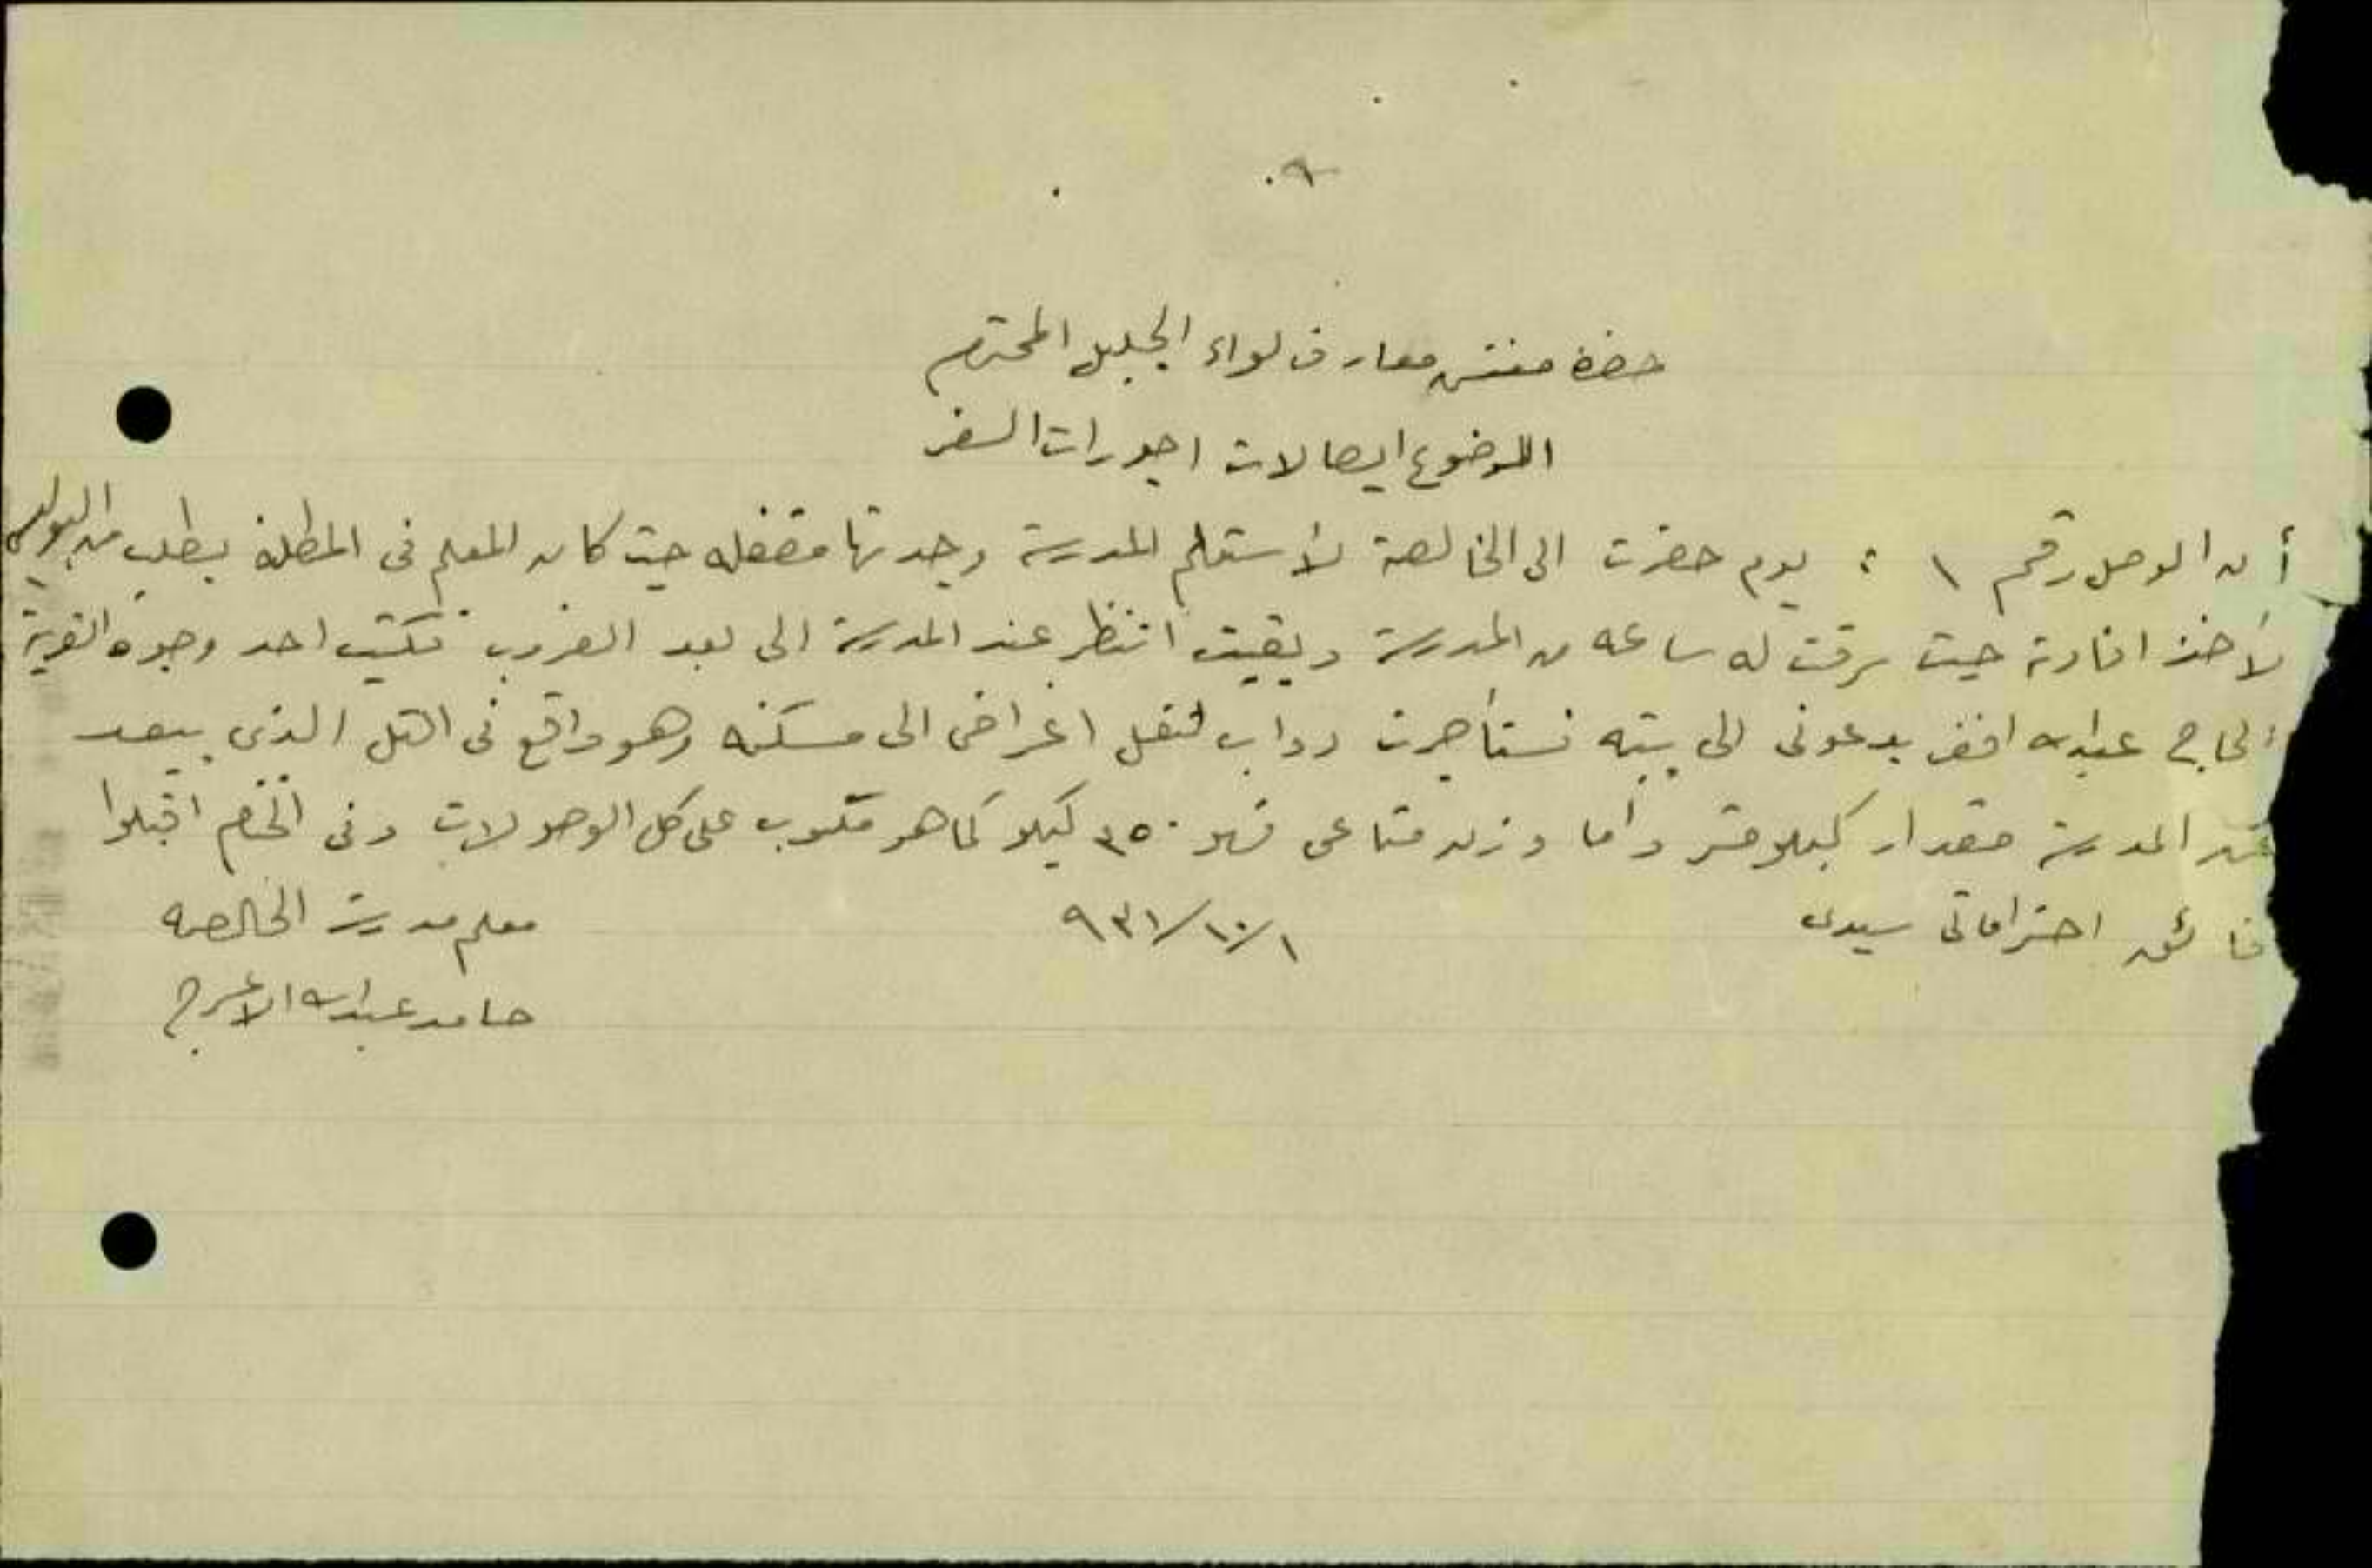 حضرة مفتش معارف لواء الجليل المحترم
الموضوع ايصالات اجورات السفر
أن الوصل رقم ١ : يوم حضرت الى الخالصة لأستلم المدرسة وجدتها مقفله حيث كان المعلم في المطلة يطلب من البوليس
لأخذ افادته حيث سرقت له ساعه من المدرسة وبقيت انتظر عند المدرسة الى بعد الغروب فكتب احد وجوه القرية
الحاج عبدالله افندي يدعوني الى بيته فستأجرت دواب لنقل اغراضي الى مسكنه وهو واقع في التل الذي يبعد
عن المدرسة مقدار كيلومتر وأما وزن متاعي فهو ٣٥٠ كيلو كما هو مكتوب على كل الوصولات وفي الختام اقبلوا
فائق احتراماتي سيدي ١/١٠/٩٣١ معلم مدرسة الخالصه
حامد عبدالله الاعرج